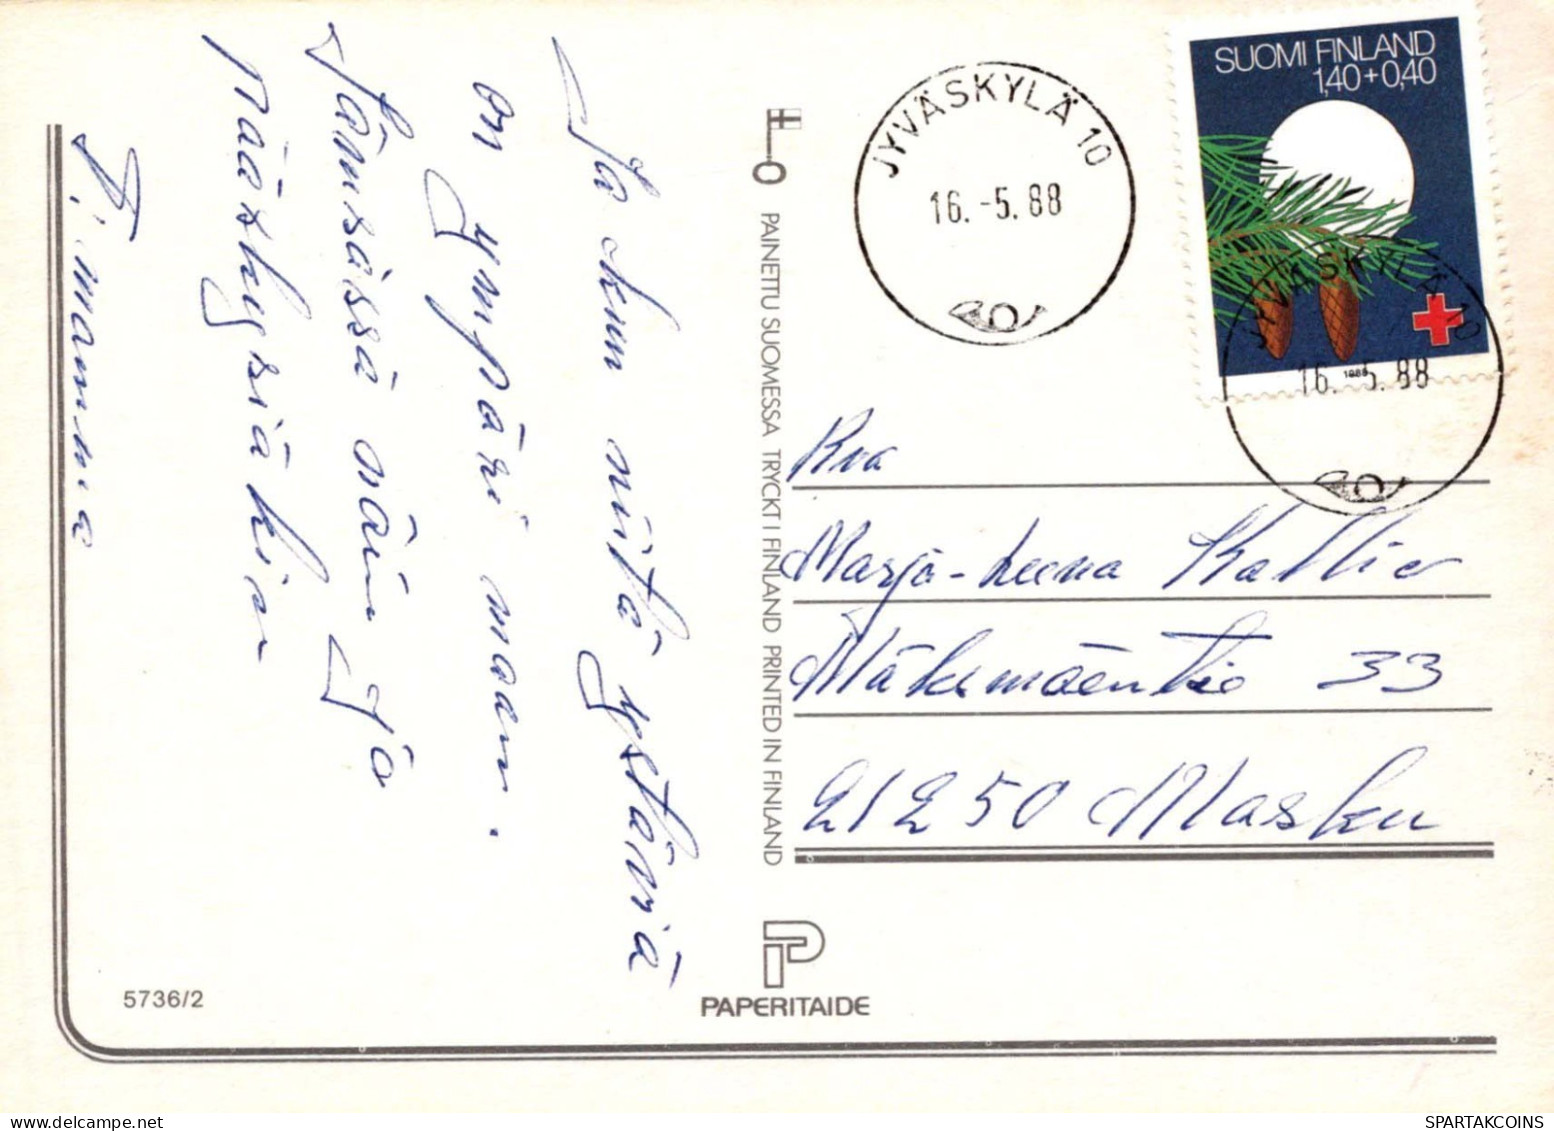 Ja kun niitä ystäviä
on ympäri maan.
Jämsässä näin jo
pääskysiäkin
T: mamma
5736/2
PAINETTU SUOMESSA TRYCKT I FINLAND PRINTED IN FINLAND
PAPERITAIDE
JYVÄSKYLÄ 10
16.-5.88
SUOMI FINLAND
1,40+0,40
1988
JYVÄSKYLÄ 10
16.-5.88
Rva
Marja-Leena Kallio
Mäkemäentie 33
21250 Masku
SPARTAKCOINS